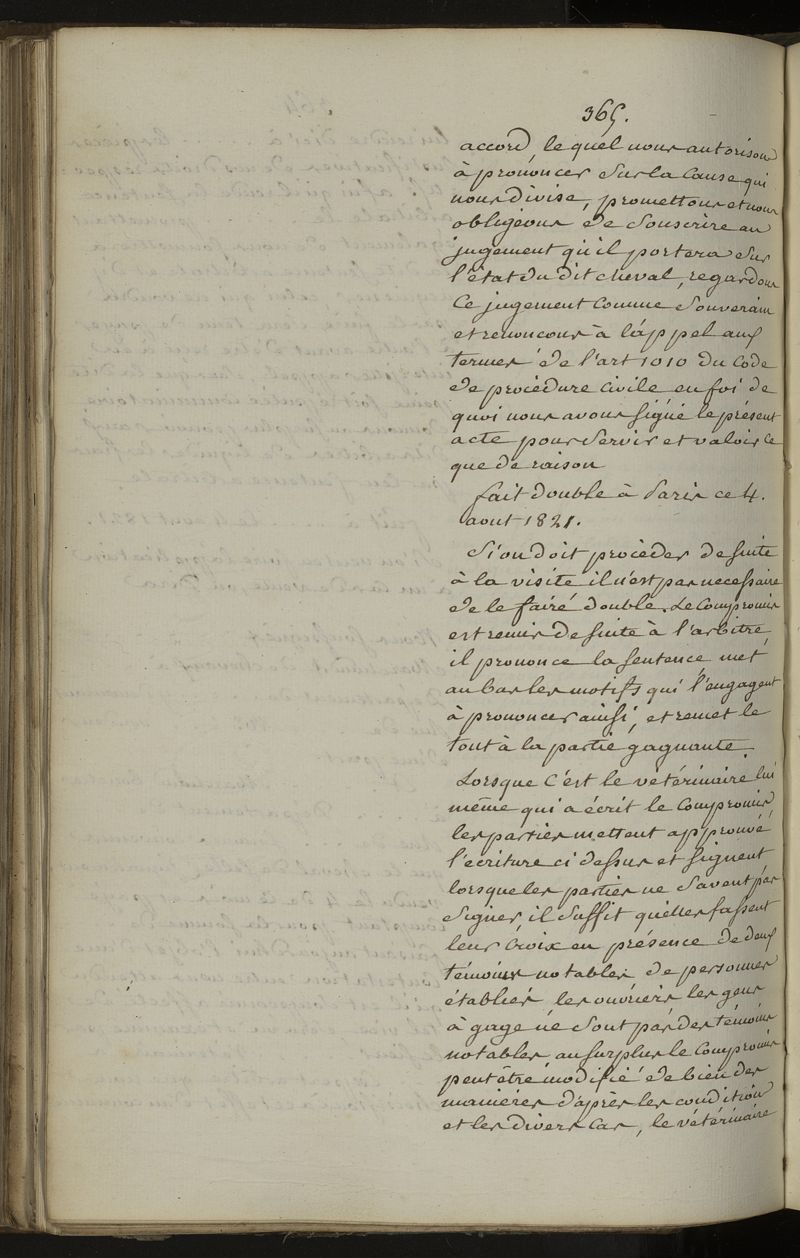 365.
accord, le quel nous autorisons
à prononcer sur la cause qui
nous divise, promettons et nous
obligeons de souscrire au
jugement qu'il portera sur
l'état du dit cheval, regardons
ce jugement comme souverain
et renoncons à l'appel aux
termes de l'art 1010 du code
de procédure civile en foi de
quoi nous avons signé le présent
acte pour servir et valoir ce
que de raison
fait double à Paris ce 4.
aout 1821.
Si on doit procéder de suite
à la visite il n'est pas necessaire
de le faire double. Le compromis
est remis de suite à l'arbitre,
il prononce la sentence, met
au bas les motifs qui l'engagent
à prononcer ainsi, et remet le
tout à la partie gagnante.
Lorsque c'est le vétérinaire lui
même qui a écrit le compromis,
les parties mettent approuvé
l'écriture ci dessus et signent,
lorsque les parties ne savent pas
signer, il suffit quelles fassent
leur croix en présence de deux
témoins notables de personnes
établies les ouvriers les gens
à gage ne sont pas des témoins
notables au surplus le compromis
peut être modifié de bien des
manieres d'après les condition
et les divers cas, le vétérinaire